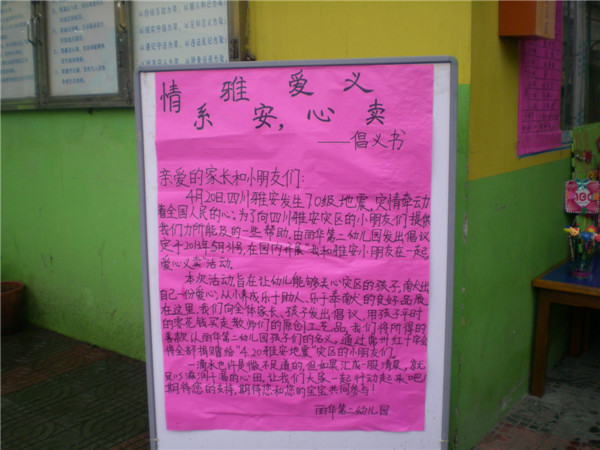 情 雅 爱 义
系 安，心 卖
——倡义书
亲爱的家长和小朋友们：
4月20日，四川雅安发生7.0级地震，灾情牵动
着全国人民的心；为了向四川雅安灾区的小朋友们提供
我们力所能及的一些帮助，由丽华第二幼儿园发出倡议
定于2013年5月3号，在园内开展“我和雅安小朋友在一起，
爱心义卖”活动。
本次活动，旨在让幼儿能够关心灾区的孩子，献出
自己一份爱心；从小养成乐于助人、乐于奉献的良好品质
在这里，我们向全体家长、孩子发出倡议，用孩子平时
的零花钱买走教师们的原创工艺品，我们将所得的
善款以丽华第二幼儿园孩子们的名义，通过常州红十字会
将全部捐赠给“4.20雅安地震”灾区的小朋友们。
一滴水也许是微不足道的，但如果汇成一股清泉，就
可以滋润干涸的心田，让我们大家一起行动起来吧！
期待您的支持，期待您和您的宝宝共同参与！
丽华第二幼儿园